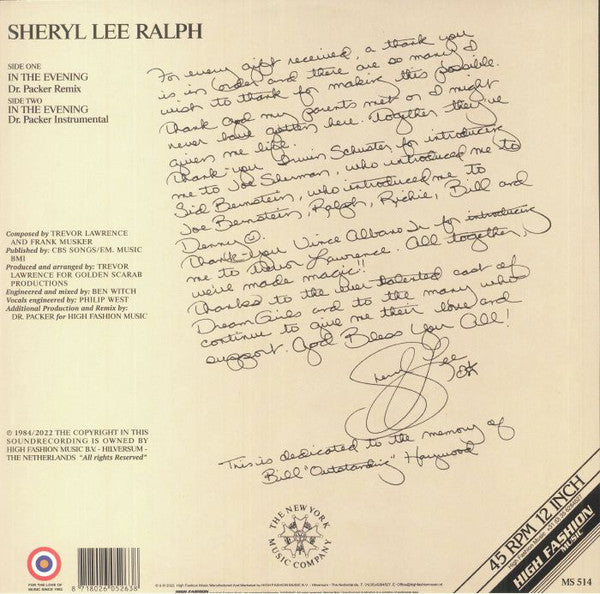 SHERYL LEE RALPH
SIDE ONE
IN THE EVENING
Dr. Packer Remix
SIDE TWO
IN THE EVENING
Dr. Packer Instrumental
For every gift received, a thank you
is in order and there are so many I
wish to thank for making this possible.
Thank God my parents met or I might
never have gotten here. Together they've
given me life.
Thank-you Irwin Schuster for introducing
me to Joe Sherman, who introduced me to
Sid Bernstein, who introduced me to
Joe Bernstein, Ralph, Richie, Bill and
Denny.
Thank-You Vince Albano Jr. for introducing
me to Trevor Lawrence. All together
we've made magic!!
Thanks to the over talented cast of
DreamGirls and to the many who
continue to give me their love and
support. God Bless You All!
Sheryl Lee
This is dedicated to the memory of
Bill "Outstanding" Haywood
Composed by TREVOR LAWRENCE
AND FRANK MUSKER
Published by: CBS SONGS/EM. MUSIC
BMI
Produced and arranged by: TREVOR
LAWRENCE FOR GOLDEN SCARAB
PRODUCTIONS
Engineered and mixed by: BEN WITCH
Vocals engineered by: PHILIP WEST
Additional Production and Remix by:
DR. PACKER for HIGH FASHION MUSIC
℗ 1984/2022 THE COPYRIGHT IN THIS
SOUNDRECORDING IS OWNED BY
HIGH FASHION MUSIC B.V. - HILVERSUM -
THE NETHERLANDS "All rights Reserved"
THE NEW YORK
MUSIC COMPANY
45 RPM 12 INCH
HIGH FASHION
MUSIC
MS 514
FOR THE LOVE OF
MUSIC SINCE 1983
8 718026 052638
HIGH FASHION